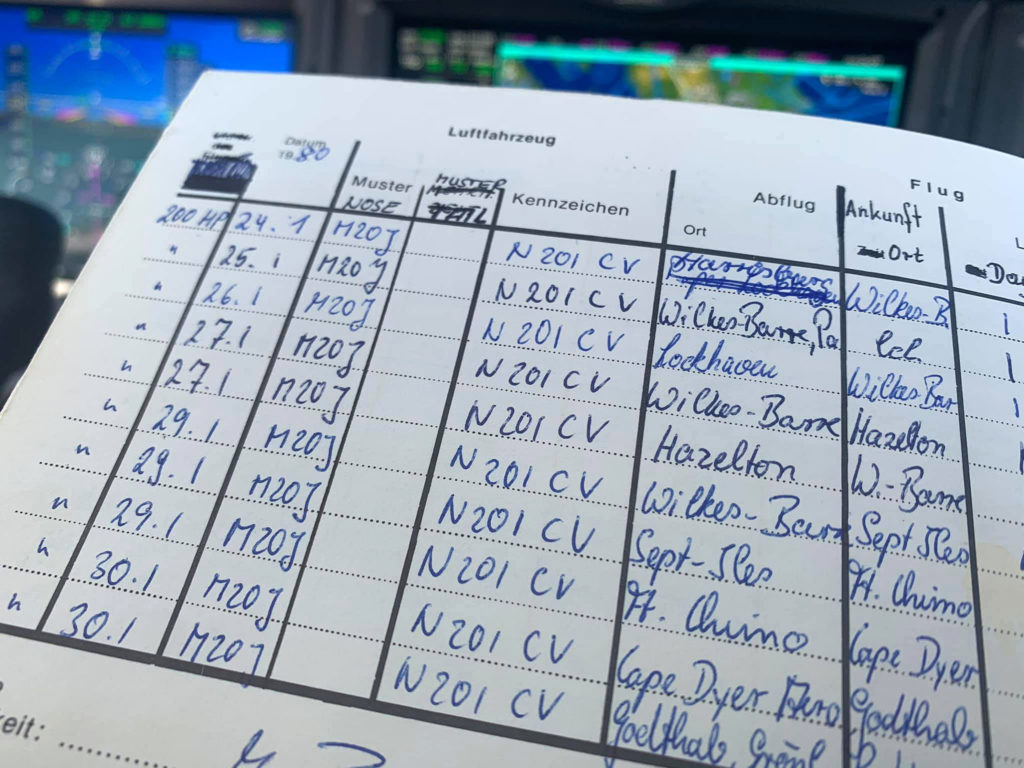 Luftfahrzeug
Flug
Datum
1980
Muster
NOSE
MUSTER
Kennzeichen
Abflug
Ort
Ankunft
Ort
200 HP 24.1 M20J N 201 CV Wilkes-B.
" 25.1 M20J N 201 CV Wilkes-Barre, Pa
" 26.1 M20J N 201 CV Lockhaven Wilkes-Bar
" 27.1 M20J N 201 CV Wilkes-Barre Hazelton
" 27.1 M20J N 201 CV Hazelton W.-Barre
" 29.1 M20J N 201 CV Wilkes-Barre Sept Iles
" 29.1 M20J N 201 CV Sept-Iles Ft. Chimo
" 29.1 M20J N 201 CV Ft. Chimo Cape Dyer
" 30.1 M20J N 201 CV Cape Dyer Godthab
" 30.1 M20J N 201 CV Godthab, Grönl
keit: